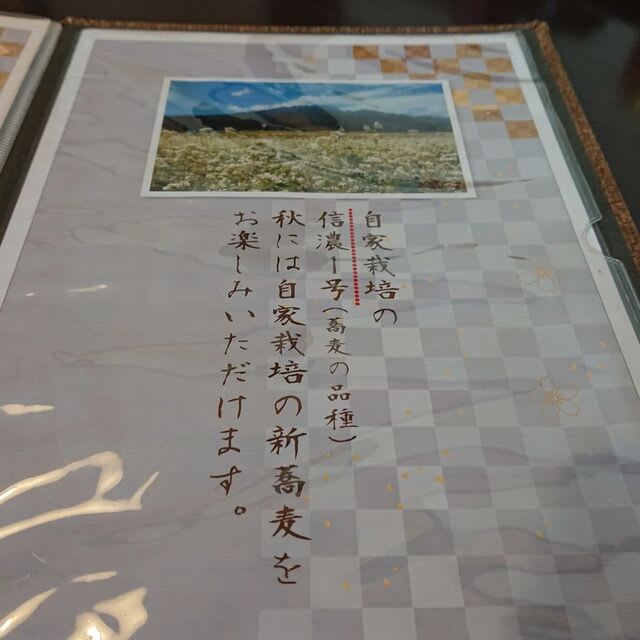 自家栽培の
信濃1号(蕎麦の品種)
秋には自家栽培の新蕎麦を
お楽しみいただけます。